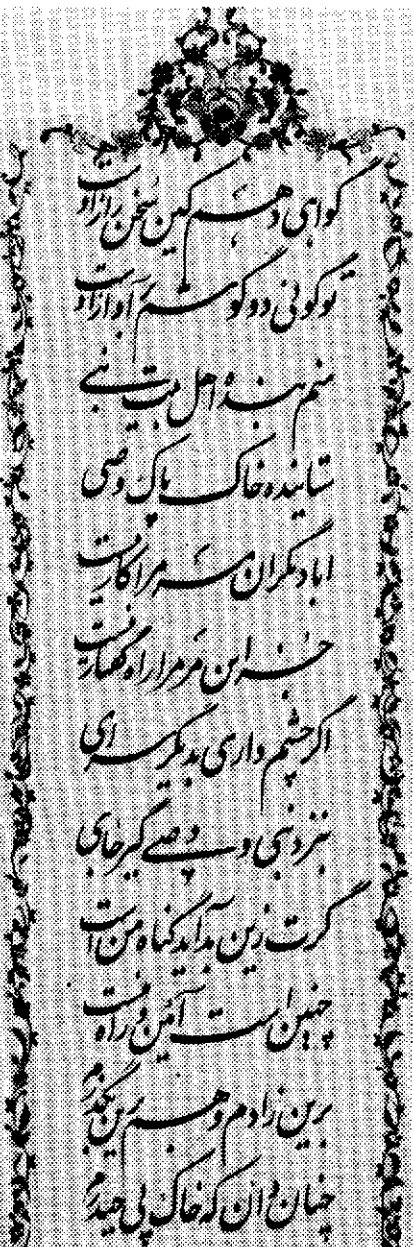 گواهی دهم کین سخن راز اوست
تو گوئی دو گوشم بر آواز اوست
منم بندهٔ اهل بیت نبی
ستاینده خاک پاک وصی
ابا دیگران مر مرا کار نیست
جز این مر مرا راه گفتار نیست
اگر چشم داری بدیگر سرای
بنزد نبی و وصی گیر جای
گرت زین بد آید گناه من است
چنین است آئین و راه منست
برین زادم و هم برین بگذرم
چنان دان که خاک پی حیدرم